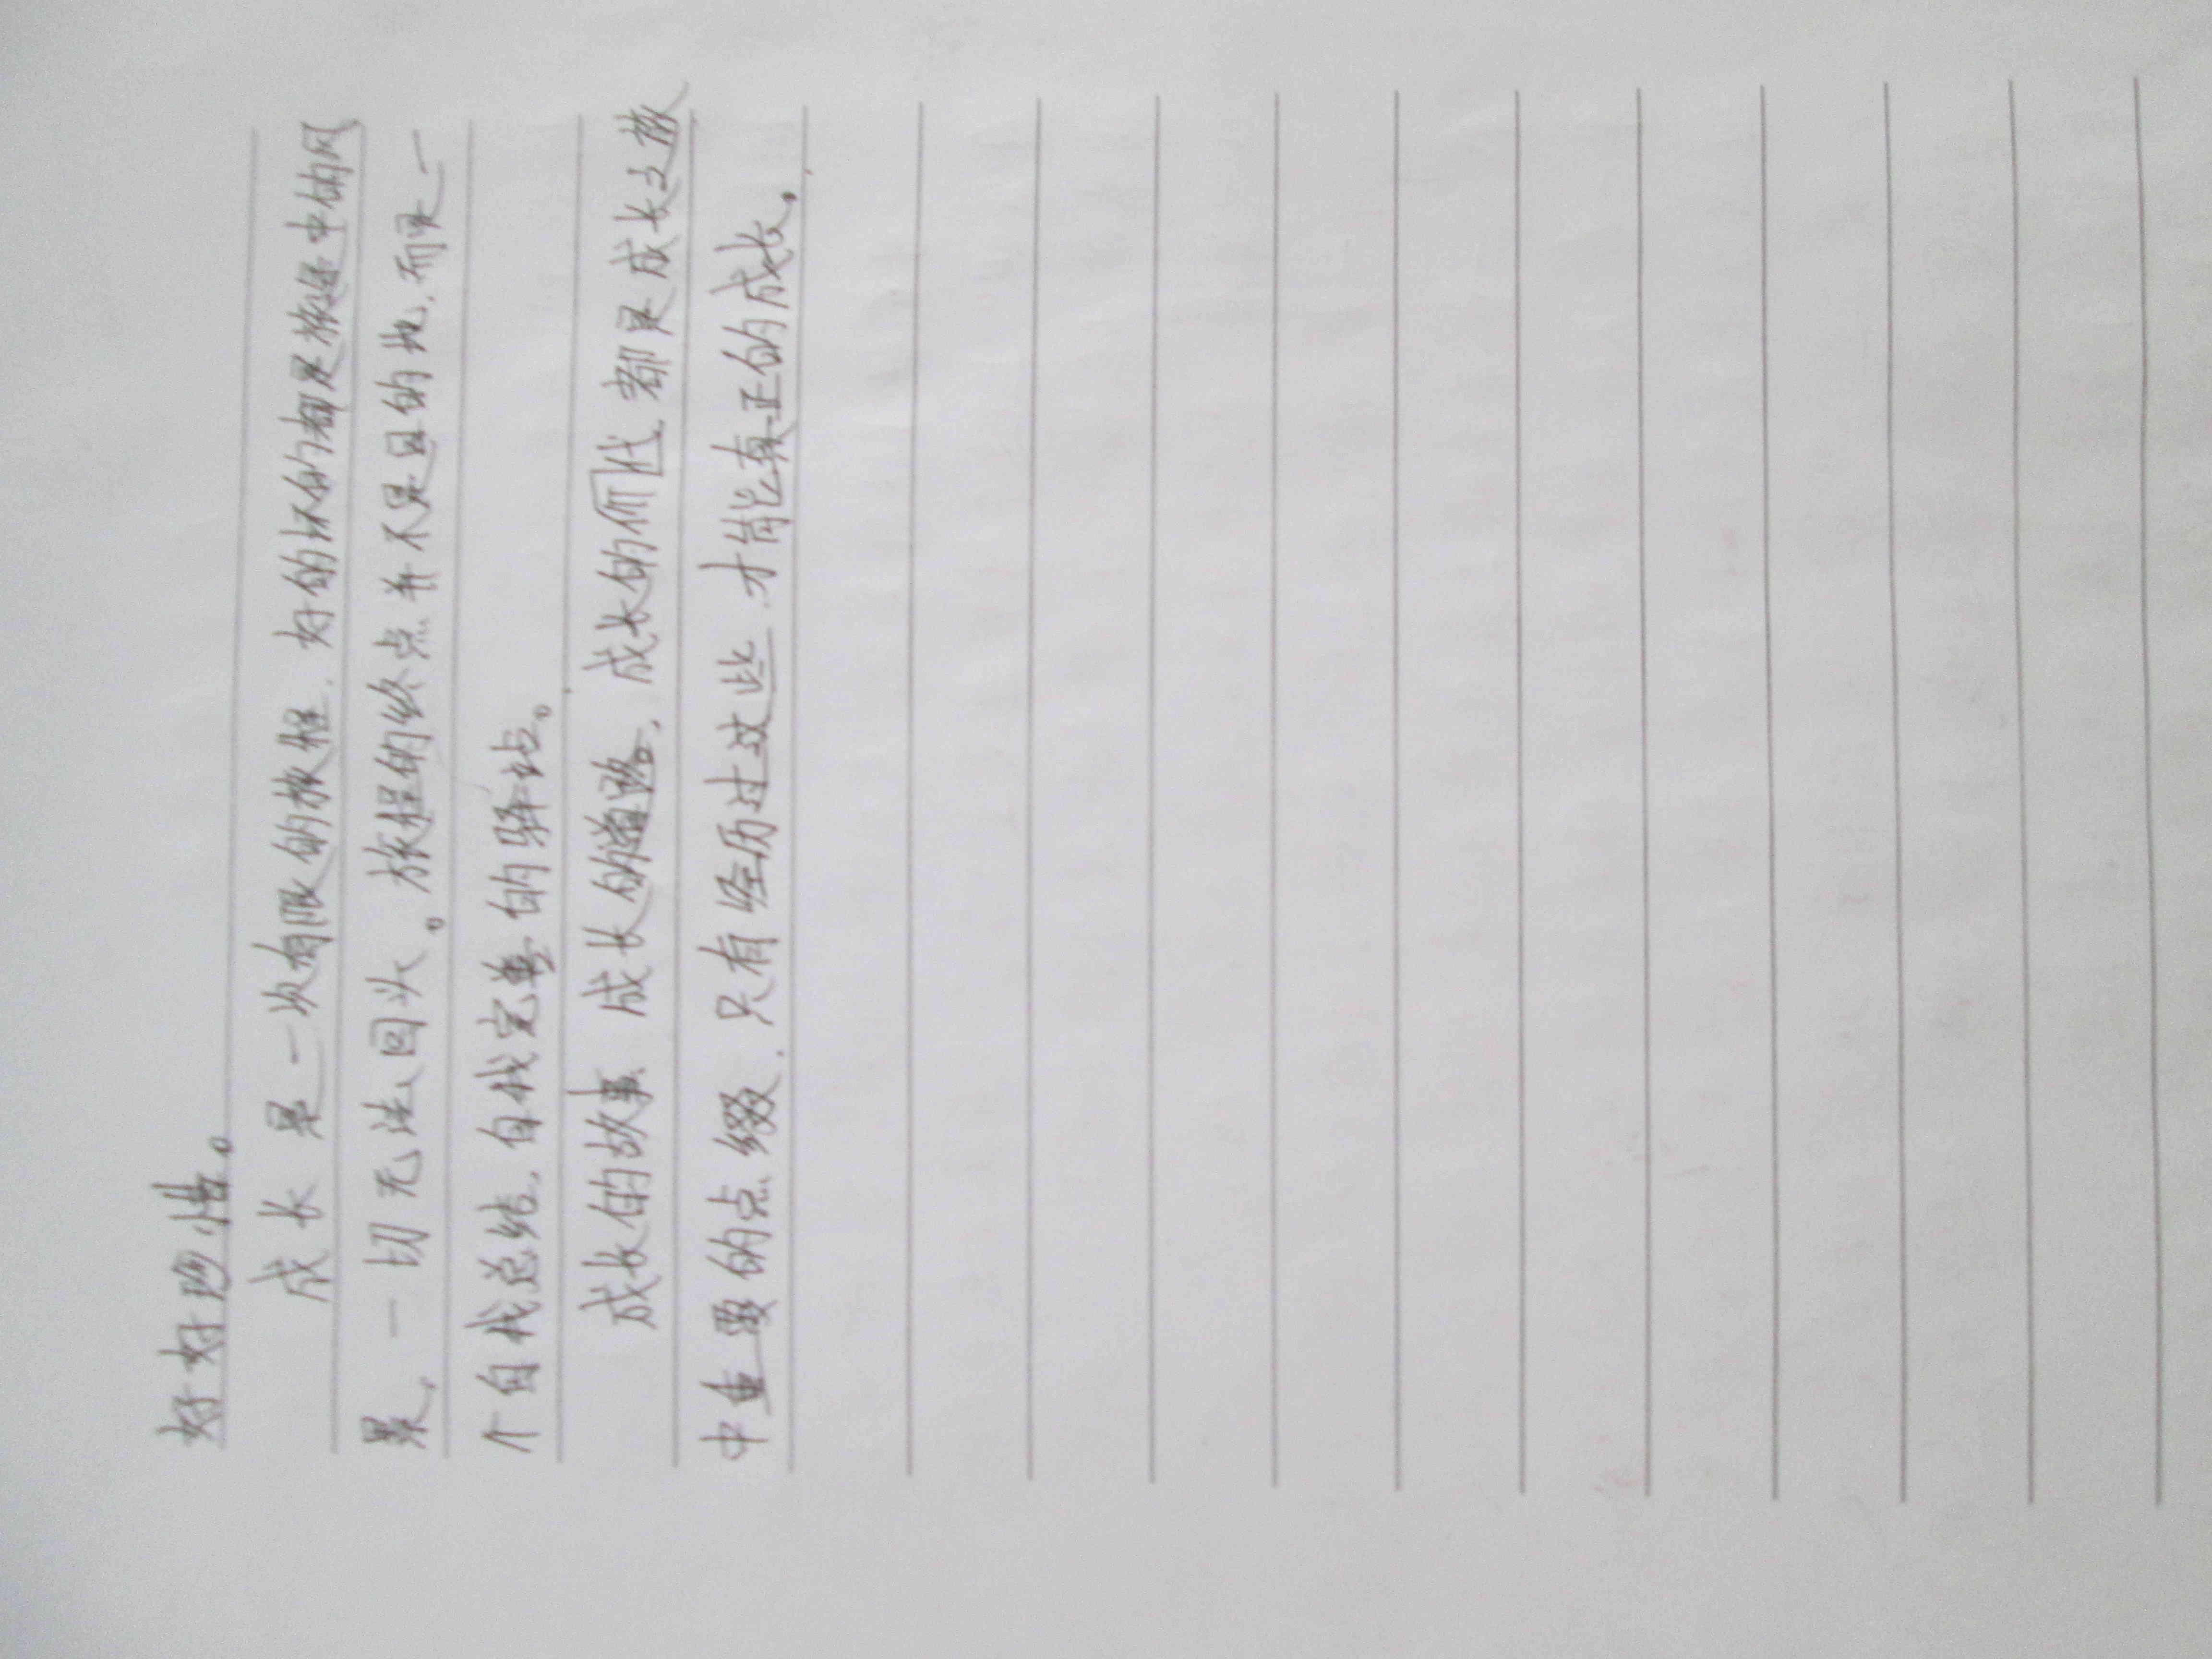 好好珍惜。
成长是一次有限的旅程，好的坏的都是旅途中的风
景，一切无法回头。旅程的终点并不是目的地，而是一
个自我总结，自我完善的驿站。
成长的故事，成长的道路，成长的代价，都是成长之旅
中重要的点缀，只有经历过这些，才能真正的成长。